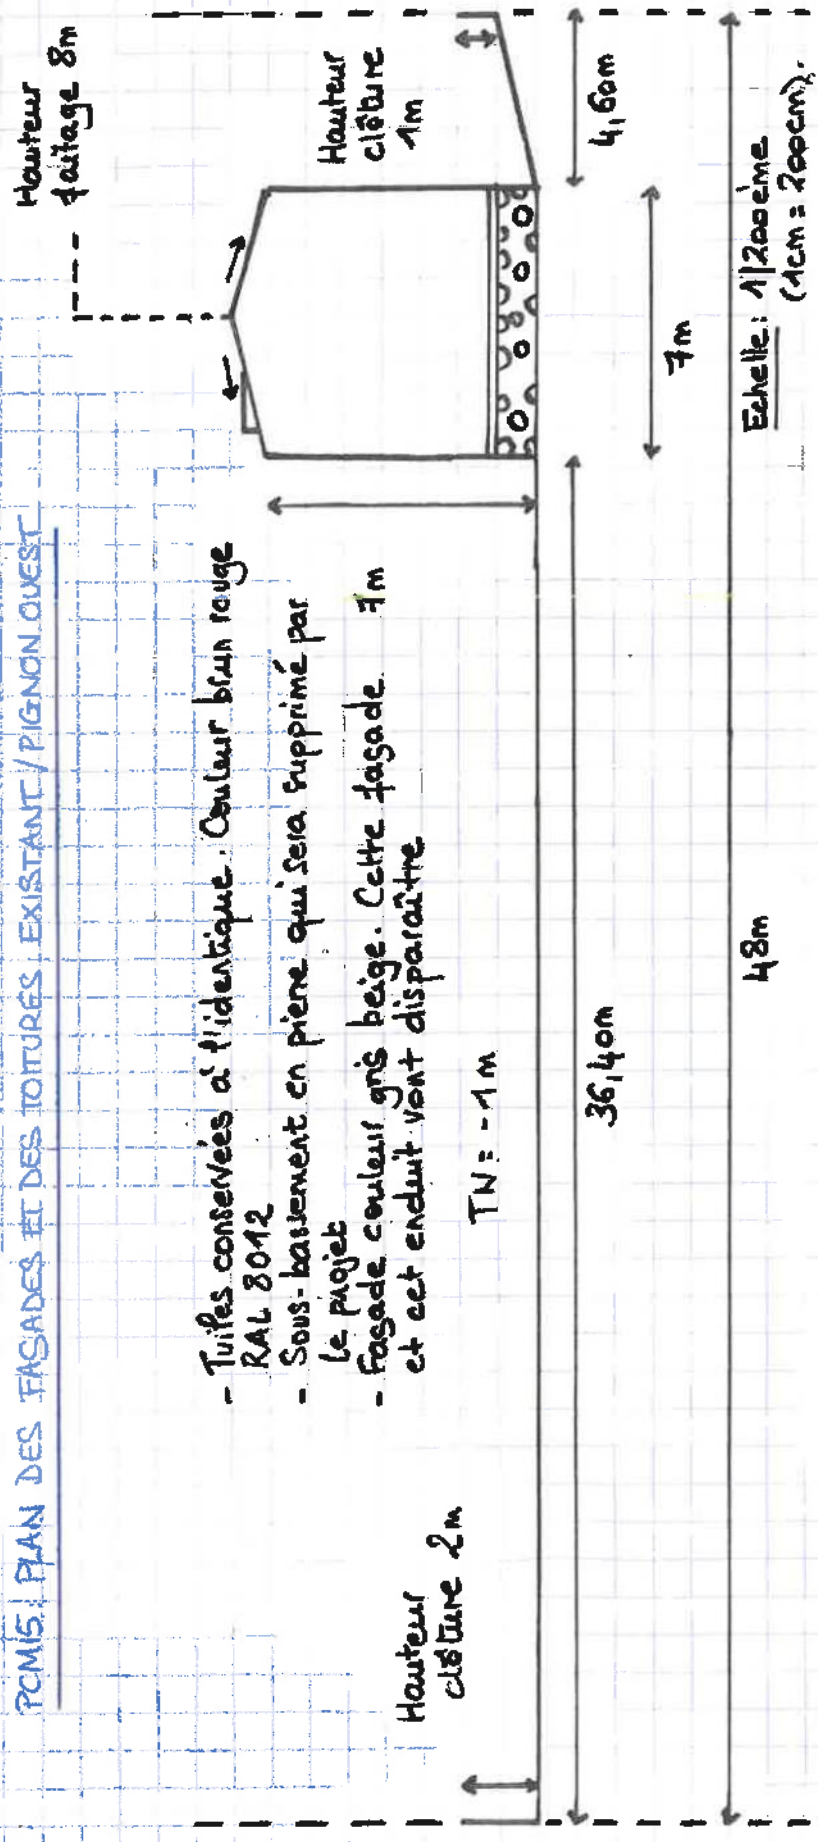 PCMI5: PLAN DES FAÇADES ET DES TOITURES EXISTANT/PIGNON OUEST
Hauteur
faîtage 8m
- Tuiles conservées à l'identique. Couleur brun rouge
RAL 8012
- Sous-bassement en pierre qui sera supprimé par
le projet
- Façade couleur gris beige. Cette façade
et cet enduit vont disparaître
7m
Hauteur
clôture
1m
Hauteur
clôture 2m
TN: -1m
36,40m
4,60m
7m
48m
Echelle: 1/200ème
(1cm = 200cm).